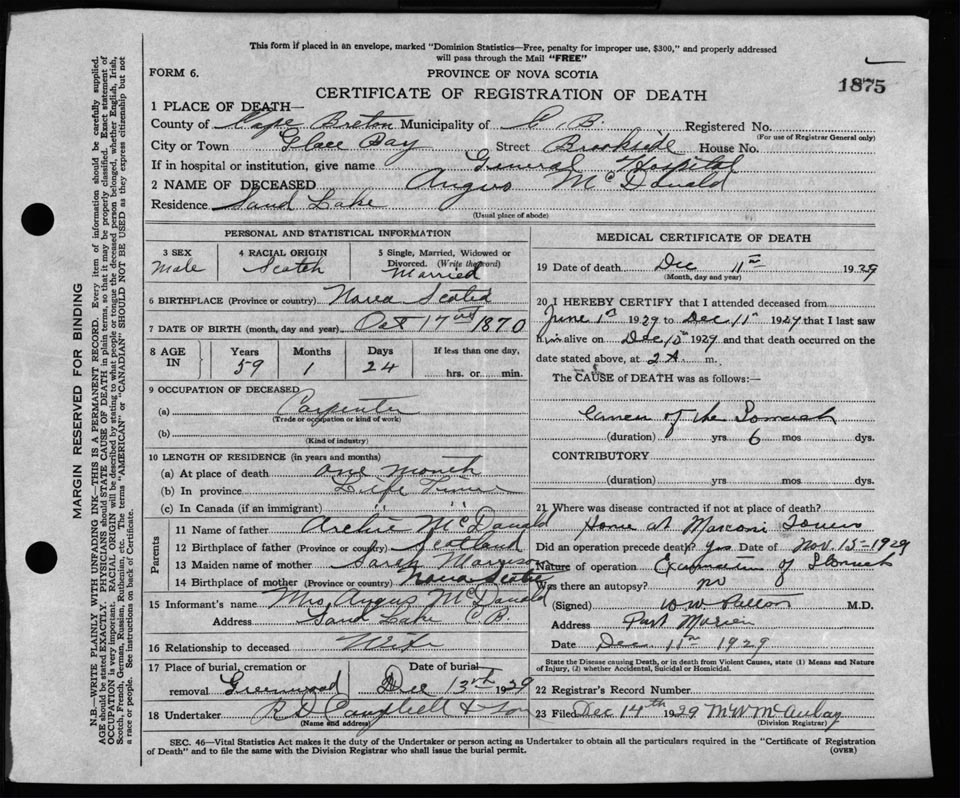 This form if placed in an envelope, marked "Dominion Statistics—Free, penalty for improper use, $300," and properly addressed
will pass through the Mail "FREE"
FORM 6.
PROVINCE OF NOVA SCOTIA
1875
CERTIFICATE OF REGISTRATION OF DEATH
1 PLACE OF DEATH—
County of Cape Breton Municipality of C. B. Registered No.
(For use of Registrar General only)
City or Town Glace Bay Street Brookside House No.
If in hospital or institution, give name General Hospital
2 NAME OF DECEASED Angus McDonald
Residence Sand Lake
(Usual place of abode)
PERSONAL AND STATISTICAL INFORMATION
3 SEX
Male
4 RACIAL ORIGIN
Scotch
5 Single, Married, Widowed or
Divorced. (Write the word)
Married
6 BIRTHPLACE (Province or country) Nova Scotia
7 DATE OF BIRTH (month, day and year) Oct 17 1870
8 AGE IN
Years Months Days If less than one day,
59 1 24 hrs. or min.
9 OCCUPATION OF DECEASED
(a) Carpenter
(Trade or occupation or kind of work)
(b)
(Kind of industry)
10 LENGTH OF RESIDENCE (in years and months)
(a) At place of death one month
(b) In province Life Time
(c) In Canada (if an immigrant) " "
Parents
11 Name of father Archie McDonald
12 Birthplace of father (Province or country) Scotland
13 Maiden name of mother Sarah
14 Birthplace of mother (Province or country) Nova Scotia
15 Informant's name Mrs Angus McDonald
Address Sand Lake C.B.
16 Relationship to deceased Wife
17 Place of burial, cremation or
removal Greenwood
Date of burial
Dec 13th 1929
18 Undertaker R D Campbell & Son
(Name and address)
MEDICAL CERTIFICATE OF DEATH
19 Date of death Dec 11th 1929
(Month, day and year)
20 I HEREBY CERTIFY that I attended deceased from
June 1st 1929 to Dec 11th 1929 that I last saw
him alive on Dec 10th 1929 and that death occurred on the
date stated above, at 2 A. m.
The CAUSE of DEATH was as follows:—
Cancer of the Stomach
(duration) yrs 6 mos dys.
CONTRIBUTORY
(duration) yrs. mos. dys.
21 Where was disease contracted if not at place of death?
Home at Marconi Towers
Did an operation precede death? yes Date of Nov. 15-1929
Nature of operation of Stomach
Was there an autopsy? no
(Signed) M.D.
Address Port Morien
Date Dec 11th 1929
State the Disease causing Death, or in death from Violent Causes, state (1) Means and Nature
of Injury, (2) whether Accidental, Suicidal or Homicidal.
22 Registrar's Record Number
23 Filed Dec 14th 1929 M W McAulay
(Division Registrar)
SEC. 46—Vital Statistics Act makes it the duty of the Undertaker or person acting as Undertaker to obtain all the particulars required in the "Certificate of Registration
of Death" and to file the same with the Division Registrar who shall issue the burial permit.
(OVER)
MARGIN RESERVED FOR BINDING
N.B.—WRITE PLAINLY WITH UNFADING INK—THIS IS A PERMANENT RECORD. Every item of information should be carefully supplied.
AGE should be stated EXACTLY. PHYSICIANS should STATE CAUSE OF DEATH in plain terms, so that it may be properly classified. Exact statement of
OCCUPATION is very important. RACIAL ORIGIN will be described by stating to what people or tongue the deceased person belonged, whether English, Irish,
Scotch, French, German, Russian, Ruthenian, etc. The terms "AMERICAN" or "CANADIAN" SHOULD NOT BE USED as they express citizenship but not
a race or people. See instructions on back of Certificate.